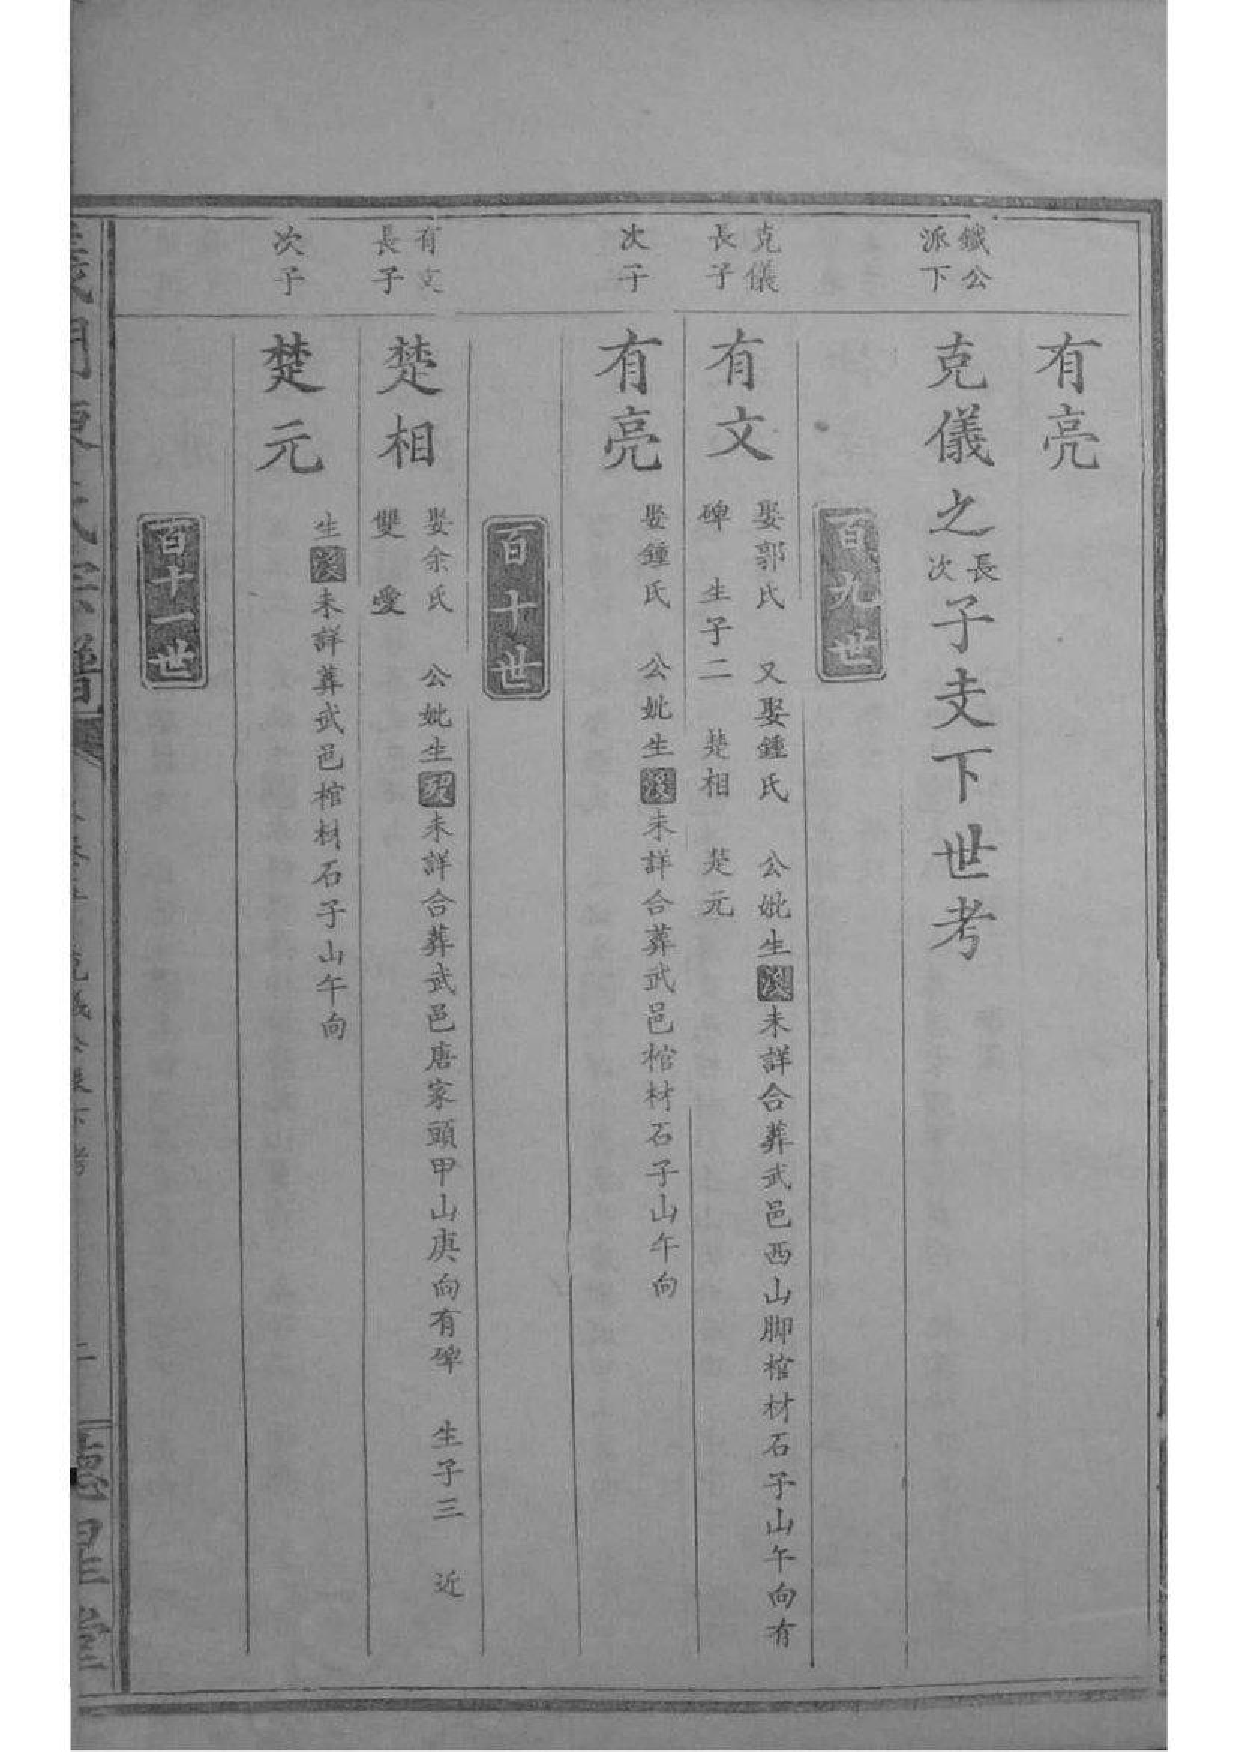 有亮
鐵公
派下
克儀之長次子支下世考
百九世
克儀
長子
有文
娶郭氏 又娶鍾氏 公妣生歿未詳合葬武邑西山脚棺材石子山午向有
碑 生子二 楚相 楚元
次子
有亮
娶鍾氏 公妣生歿未詳合葬武邑棺材石子山午向
百十世
有文
長子
楚相
娶余氏 公妣生歿未詳合葬武邑唐家頭甲山庚向有碑 生子三 近
雙 愛
次子
楚元
生歿未詳葬武邑棺材石子山午向
百十一世